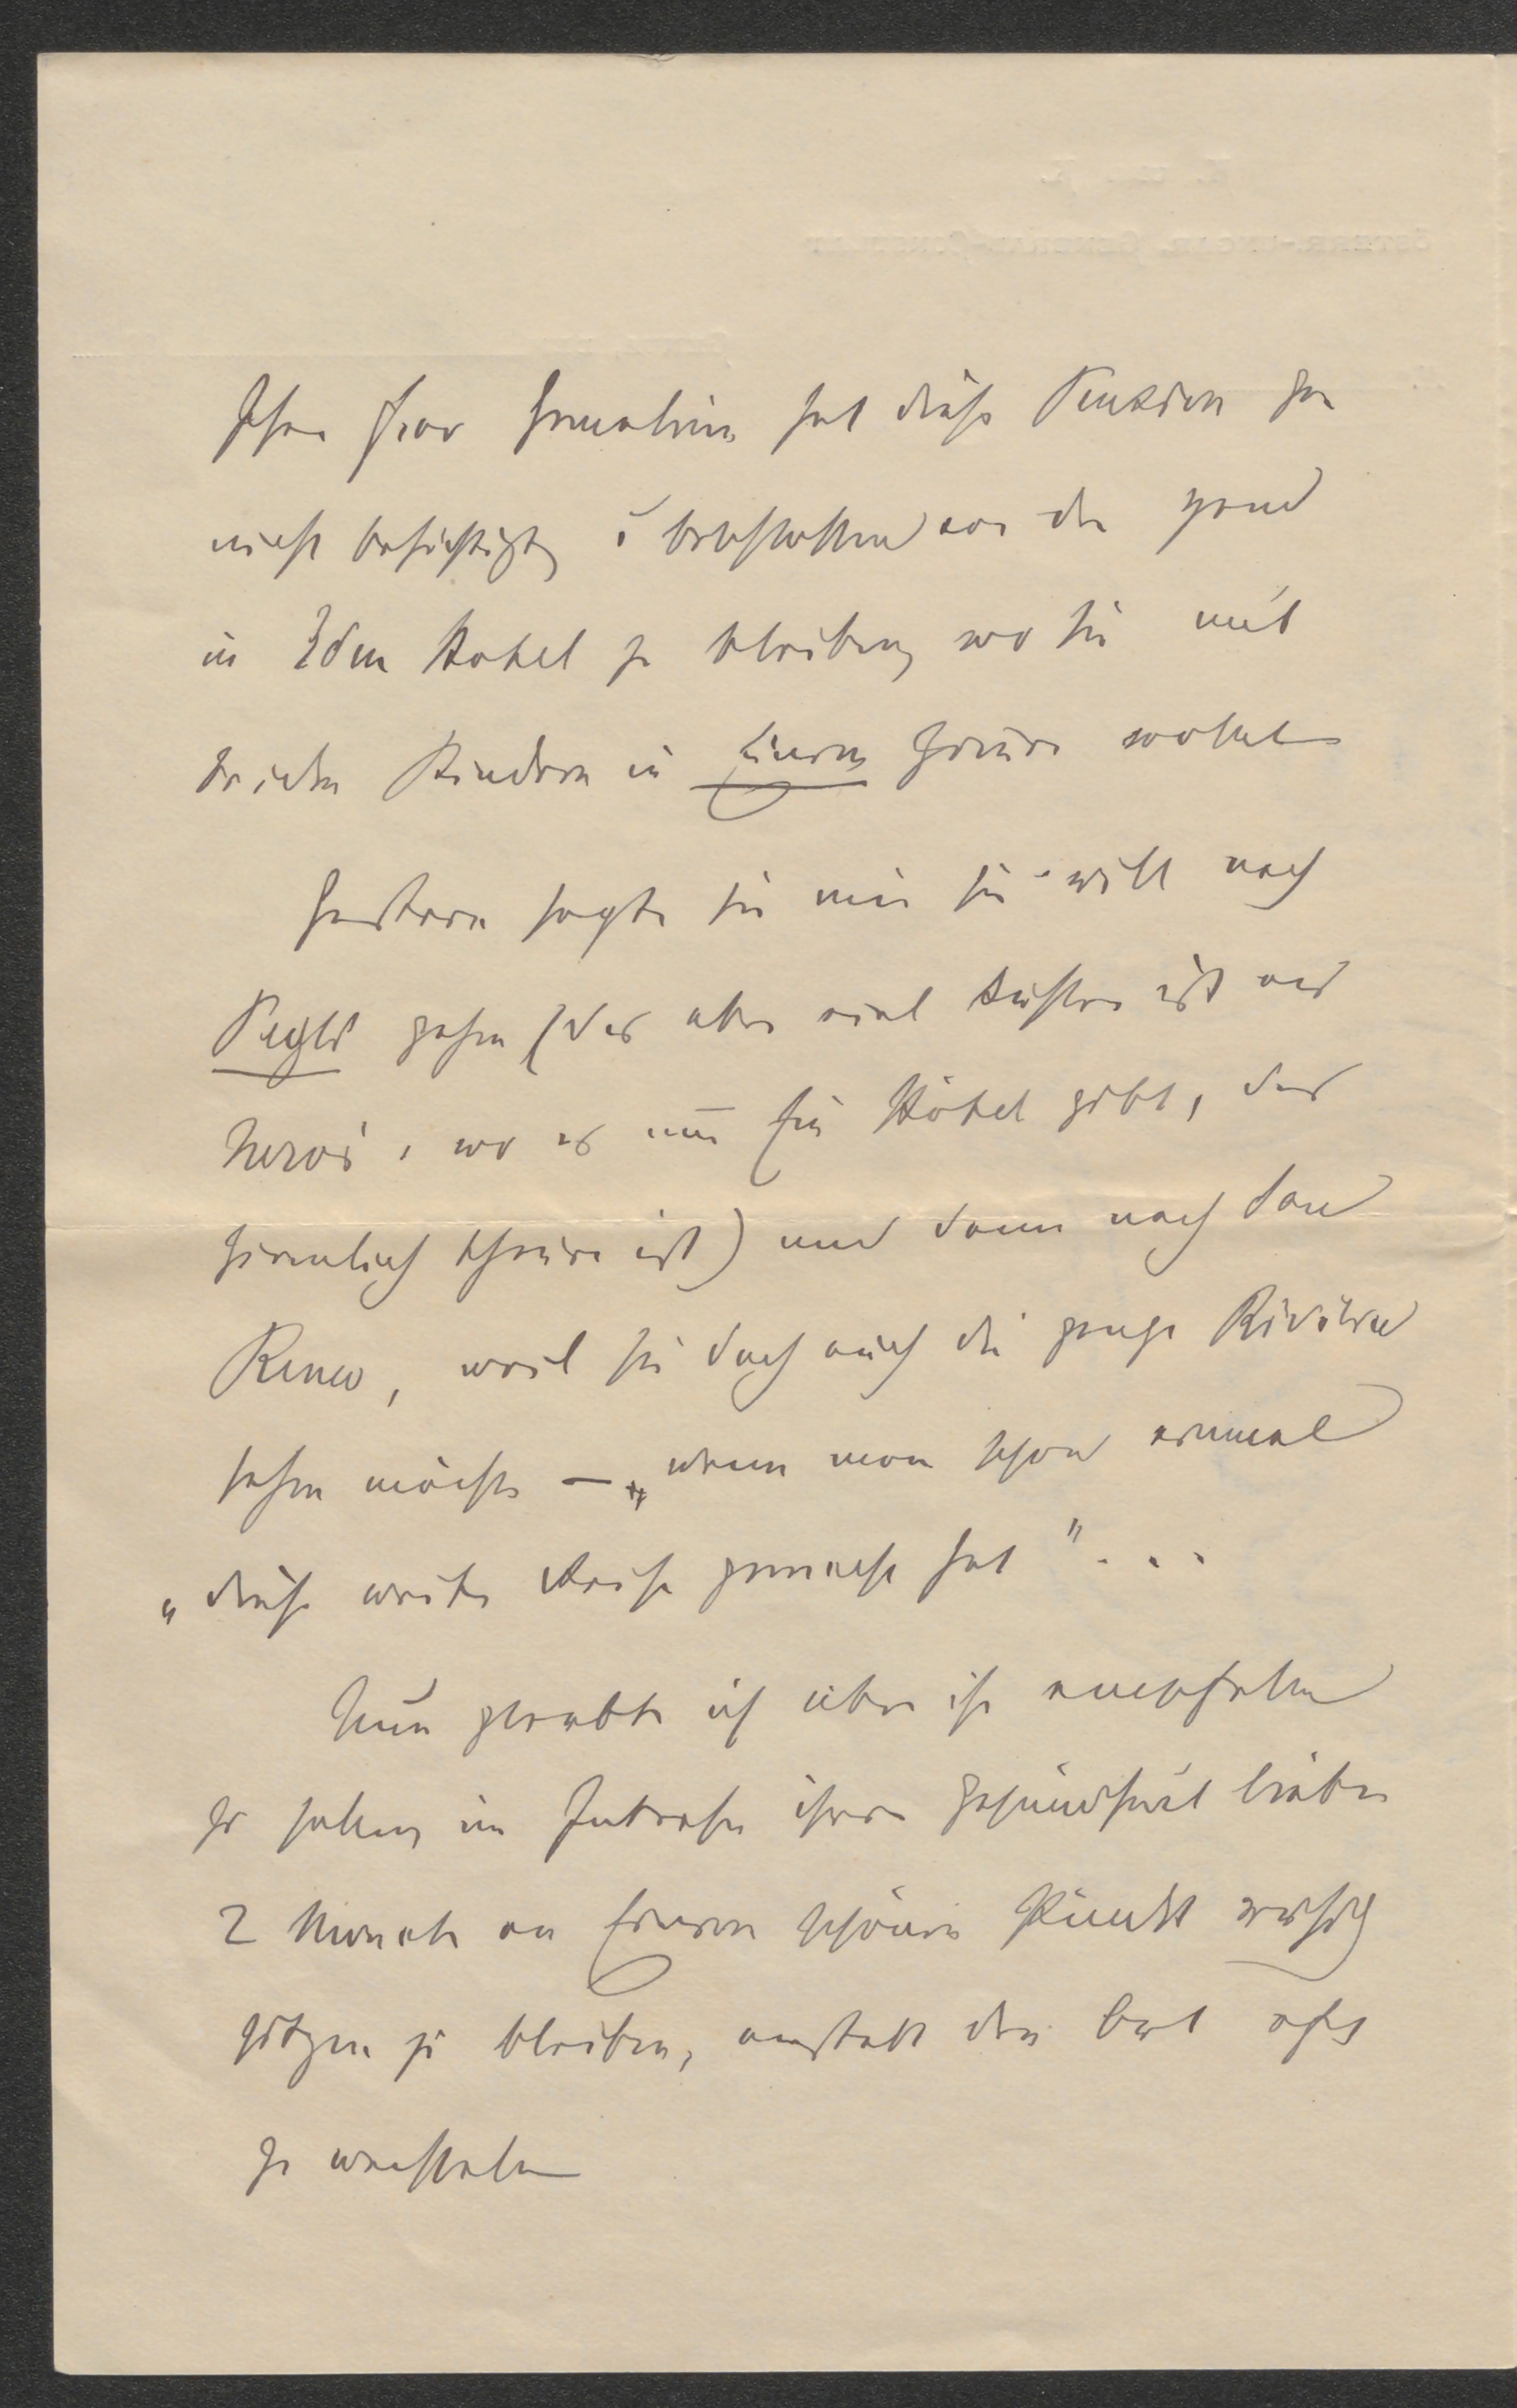 Ihre Frau Gemahlin hat diese Pension gar
nicht besichtigt, u beschlossen vor der Hand
in Eden Hotel zu bleiben, wo sie mit
beiden Kindern in Einem Zimmer wohnt
Gestern sagte sie mir sie will nach
Pegli gehen (das aber viel düstrer ist als
Nervi, wo es nur Ein Hôtel gibt, das
ziemlich theuer ist) und dann nach San
Remo, weil sie doch auch die ganze Riviera
sehen möchte — „wenn man schon einmal
„diese weite Reise gemacht hat" . . .
Nun glaubte ich aber ihr empfehlen
zu sollen, im Interesse ihrer Gesundheit lieber
2 Monate an Einem schönen Punkt ruhig
sitzen zu bleiben, anstatt den Ort oft
zu wechseln